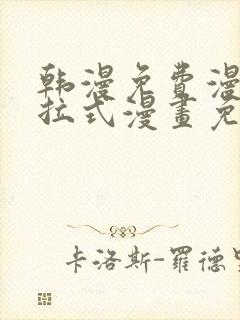 韩漫免费漫
拉式漫畫免
卡洛斯-羅德里